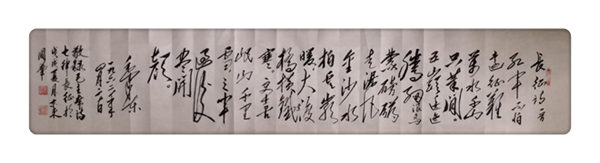 长征诗一首
红军不怕
远征难
万水千山
只等闲
五岭逶迤
腾细浪乌
蒙磅礴
走泥丸
金沙水
拍云崖
暖大渡
桥横铁
索寒更喜
岷山千里
雪三军
过后尽开
颜
毛泽东
一九六二年
四月
敬录毛主席诗
七律长征于
戊戌夏月